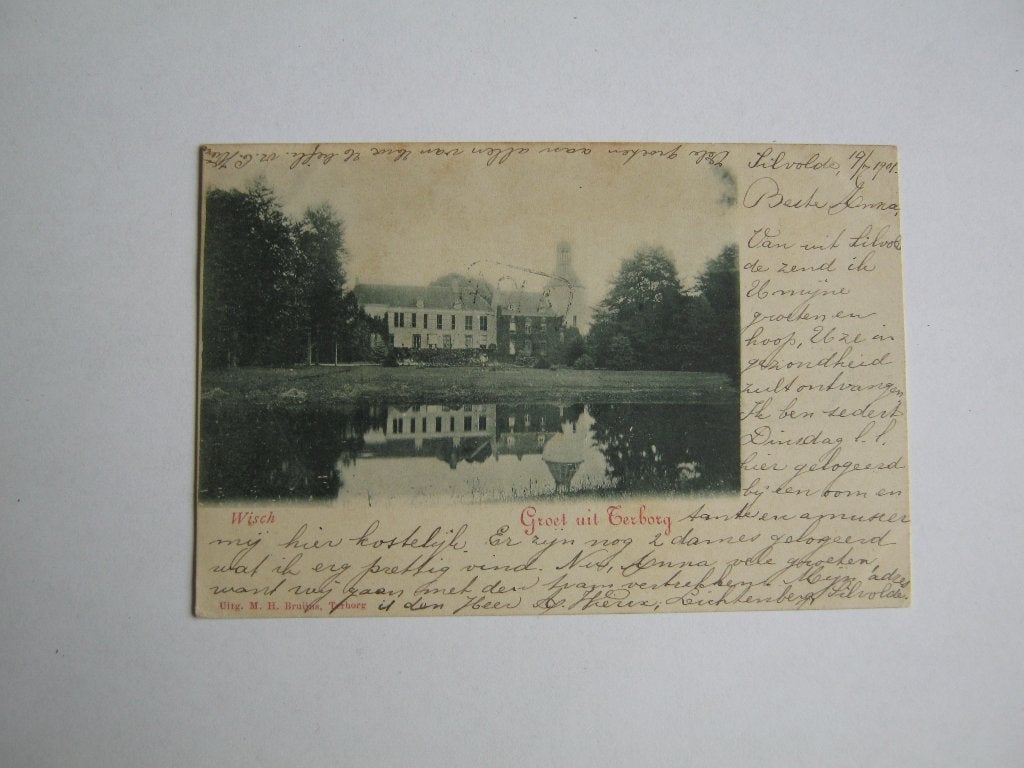 Silvolde, 19/ 1901.
Beste Anna,
Van uit Silvol
de zend ik
U mijne
groeten en
hoop, U ze in
gezondheid
zult ontvangen
Ik ben sedert
Dinsdag l.l.
hier gelogeerd
bij een oom en
tante en amuseer
mij hier kostelijk. Er zijn nog 2 dames gelogeerd
wat ik erg prettig vind. Nu, Anna, vele groeten,
want wij gaan met den tram vertrekken. Mijn adres
is den Heer Lichtenberg, Silvolde.
Vele groeten aan allen van Uw
Wisch
Groet uit Terborg
Uitg. M. H. Bruijns, Terborg